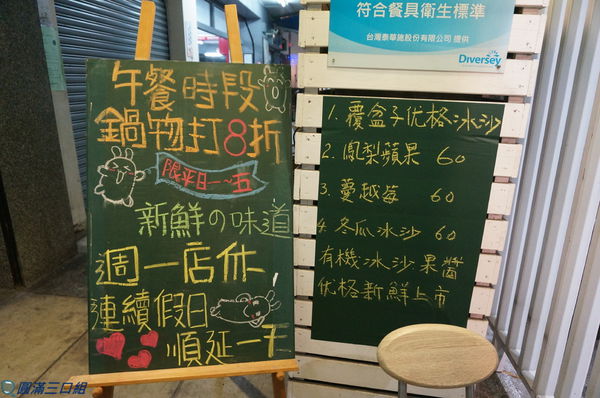 午餐時段
鍋物打8折
限平日一~五
新鮮の味道
週一店休
連續假日
順延一天
符合餐具衛生標準
台灣泰華施股份有限公司 提供
Diversey
1. 覆盒子优格冰沙
2. 鳳梨蘋果 60
3. 蔓越莓 60
4. 冬瓜冰沙 60
有機冰沙果醬
优格新鮮上市
圓滿三口組